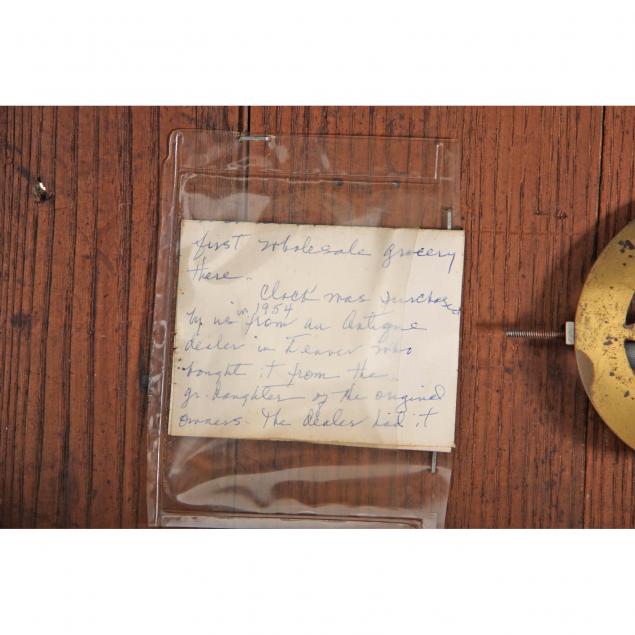 first wholesale grocery
there.
Clock was purchased
by us in 1954 from an Antique
dealer in Denver who
bought it from the
gr. daughter of the original
owners. The dealer had it